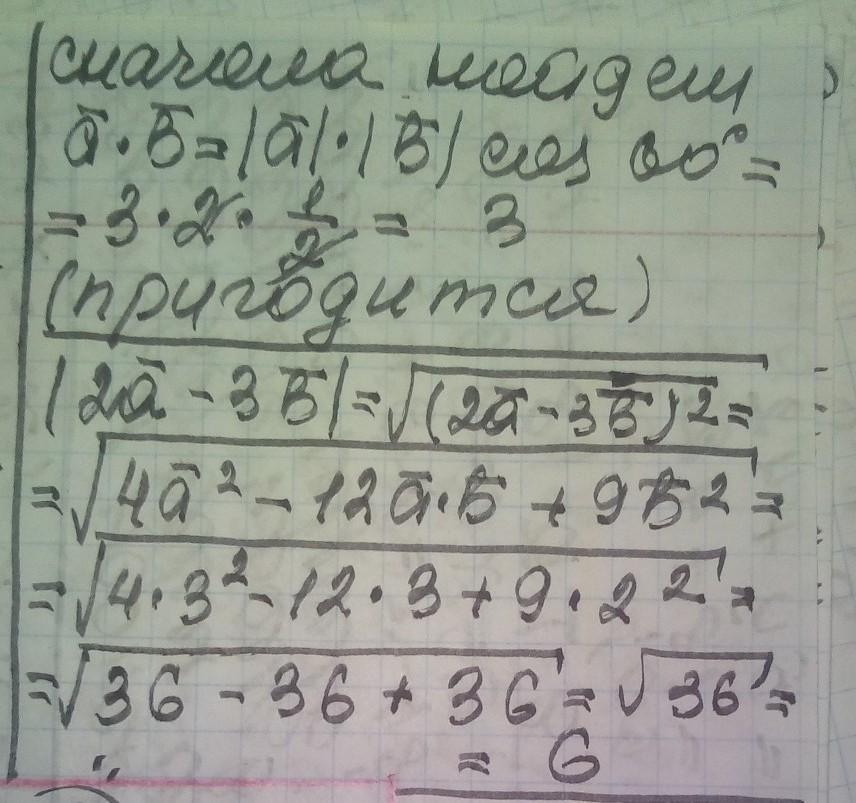 сначала найдем
ā · b̄ = |ā| · |b̄| cos 60° =
= 3 · 2 · 1/2 = 3
(пригодится)
|2ā - 3b̄| = √(2ā - 3b̄)² =
= √4ā² - 12ā·b̄ + 9b̄² =
= √4·3² - 12·3 + 9·2² =
= √36 - 36 + 36 = √36 =
= 6